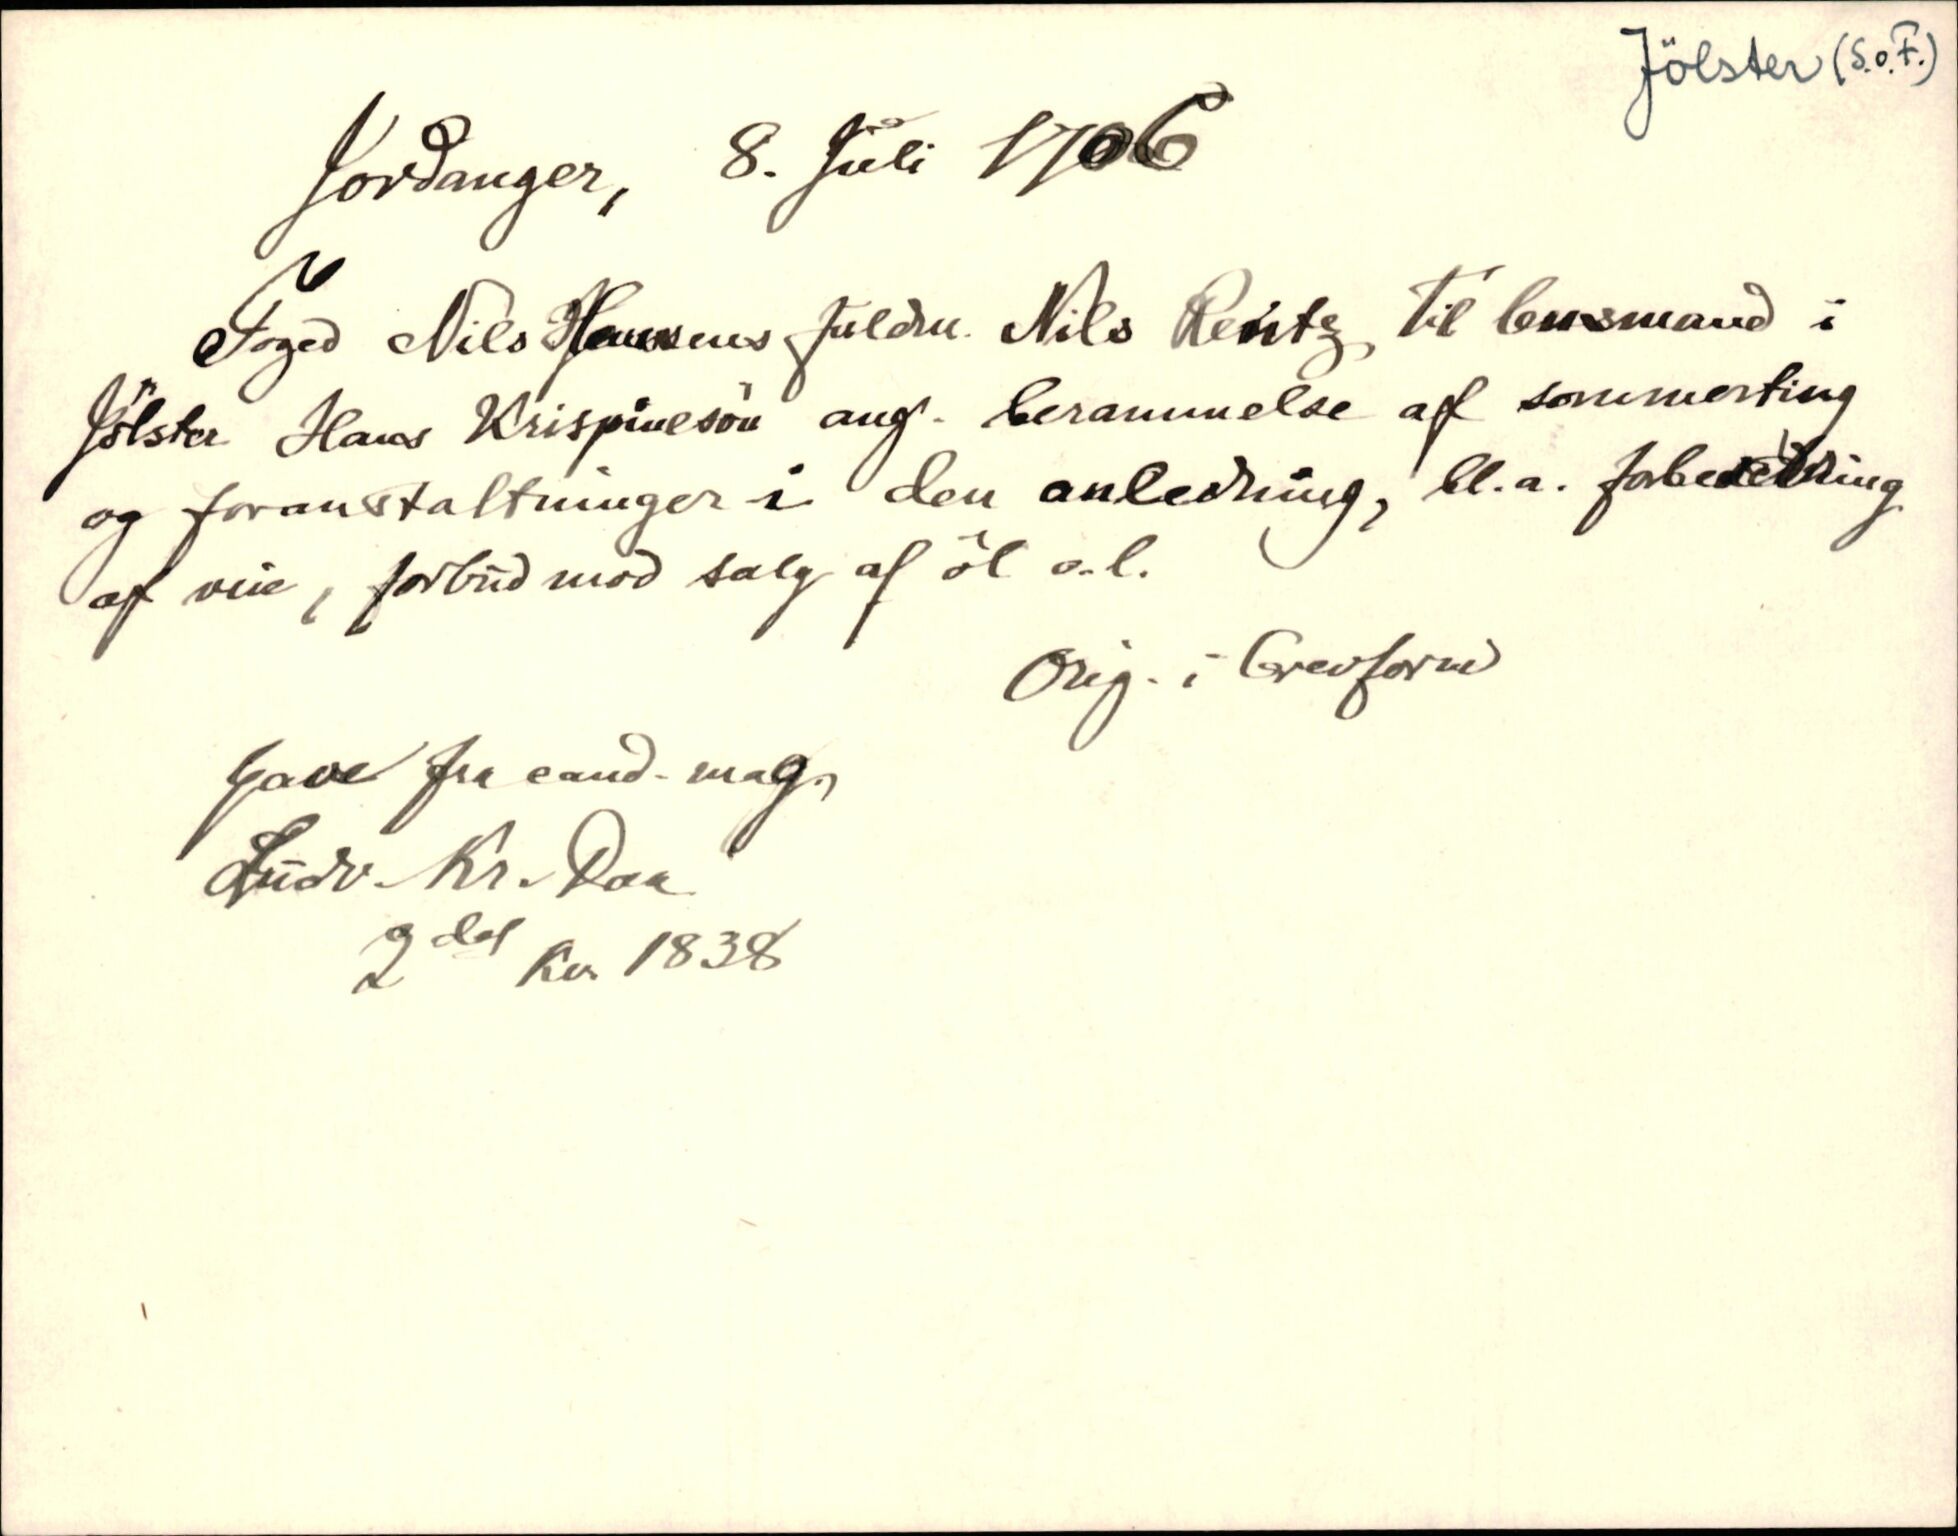 Jölster (S.o.F.)
Jordanger, 8. Juli 1706
Foged Nils Hansens fuldm. Nils Rentz til lensmand i
Jölster Hans Krispinesön ang. berammelse af sommerting
og foranstaltninger i den anledning, bl.a. forbedring
af veie, forbud mod salg af öl o.l.
Orig. i brevform
Gave fra cand. mag.
Ludv. Kr. Daa
2det Kv. 1838